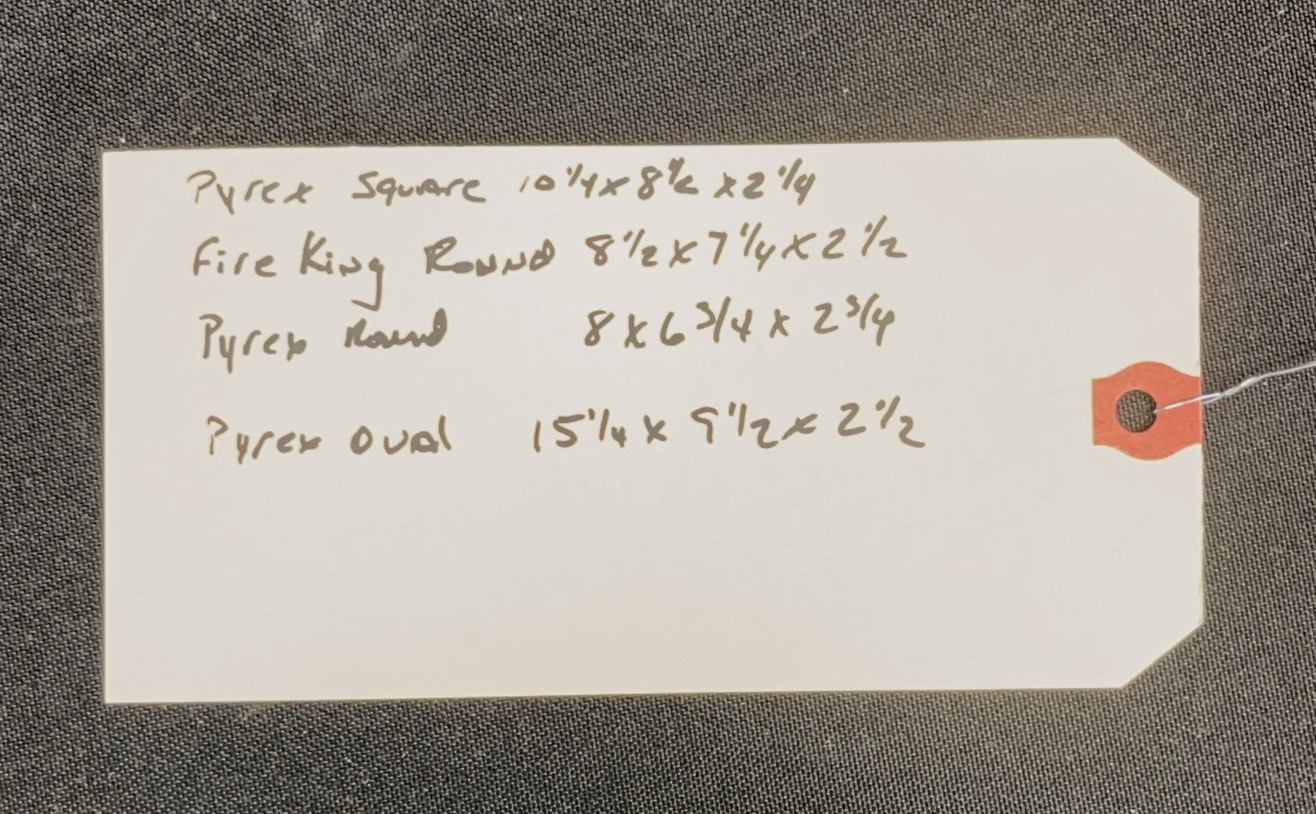 Pyrex Square 10 1/4 x 8 1/2 x 2 1/4
Fire King Round 8 1/2 x 7 1/4 x 2 1/2
Pyrex Round 8 x 6 3/4 x 2 3/4
Pyrex Oval 15 1/4 x 9 1/2 x 2 1/2